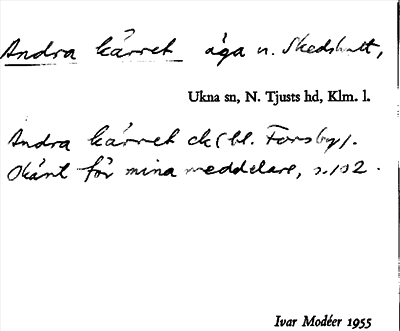 Andra kärret äga u. Skedshult,
Ukna sn, N. Tjusts hd, Klm. l.
Andra kärret ck (bl. Forsby).
Okänt för mina meddelare, s. 102.
Ivar Modéer 1955